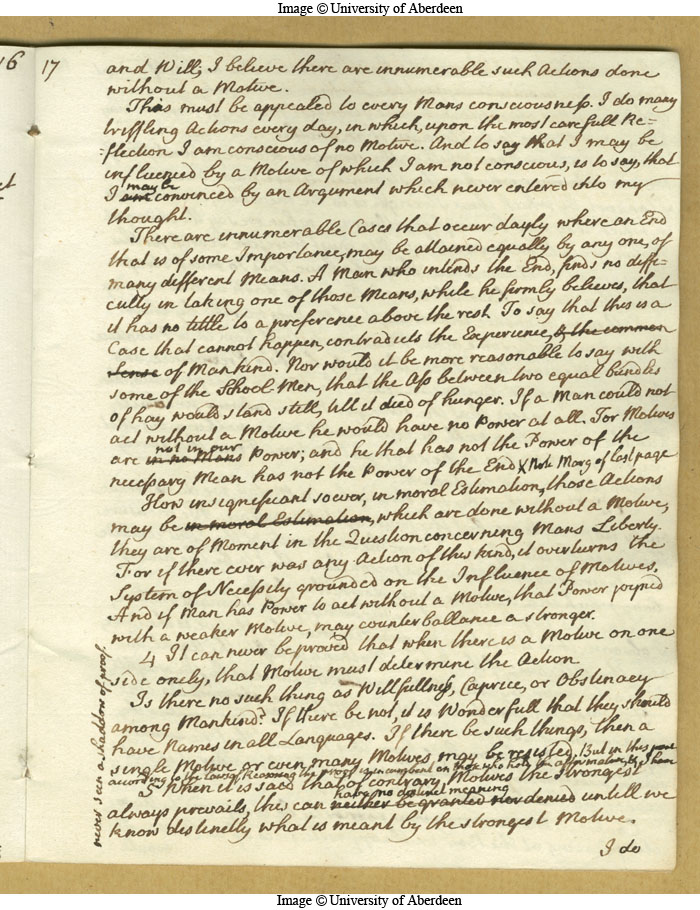 Image © University of Aberdeen
16
17
and Will; I believe there are innumerable such Actions done
without a Motive.
This must be appealed to every Mans consciousness. I do many
triffling Actions every day, in which, upon the most carefull Re=
=flection I am conscious of no Motive. And to say that I may be
influenced by a Motive of which I am not conscious, is to say, that
may be
I am convinced by an Argument which never entered into my
thought.
There are innumerable Cases that occur dayly where an End
that is of some Importance, may be attained equally by any one, of
many different Means. A Man who intends the End, finds no diffi=
culty in taking one of those Means, while he firmly believes, that
it has no title to a preference above the rest. To say that this is a
Case that cannot happen, contradicts the Experience, & the common
Sense of Mankind. Nor would it be more reasonable to say with
some of the School-Men, that the Ass between two equal bundles
of hay would stand still, till it died of hunger. If a Man could not
act without a Motive he would have no Power at all. For Motives
not in our
are in no Mans Power; and he that has not the Power of the
necessary Mean has not the Power of the End X Note Marg of last page
How insignificant soever, in moral Estimation, those Actions
may be in moral Estimation, which are done without a Motive,
they are of Moment in the Question concerning Mans Liberty.
For if there ever was any Action of this kind, it overturns the
System of Necessity grounded on the Influence of Motives.
And if Man has Power to act without a Motive, that Power joyned
with a weaker Motive, may counterballance a stronger.
4 It can never be proved that when there is a Motive on one
side onely, that Motive must determine the Action
Is there no such thing as Willfullness, Caprice, or Obstinacy
among Mankind? If there be not, it is Wonderfull that they should
have Names in all Languages. If there be such things, then a
single Motive or even many Motives may be resisted. But in this point
according to the Laws of Reasoning the proof is incumbent on those who hold the affirmative, & I have
never seen a shaddow of proof.
5 When it is said that of contrary Motives the strongest
have no distinct meaning
always prevails, this can neither be granted nor denied untill we
know distinctly what is meant by the strongest Motive.
I do
Image © University of Aberdeen